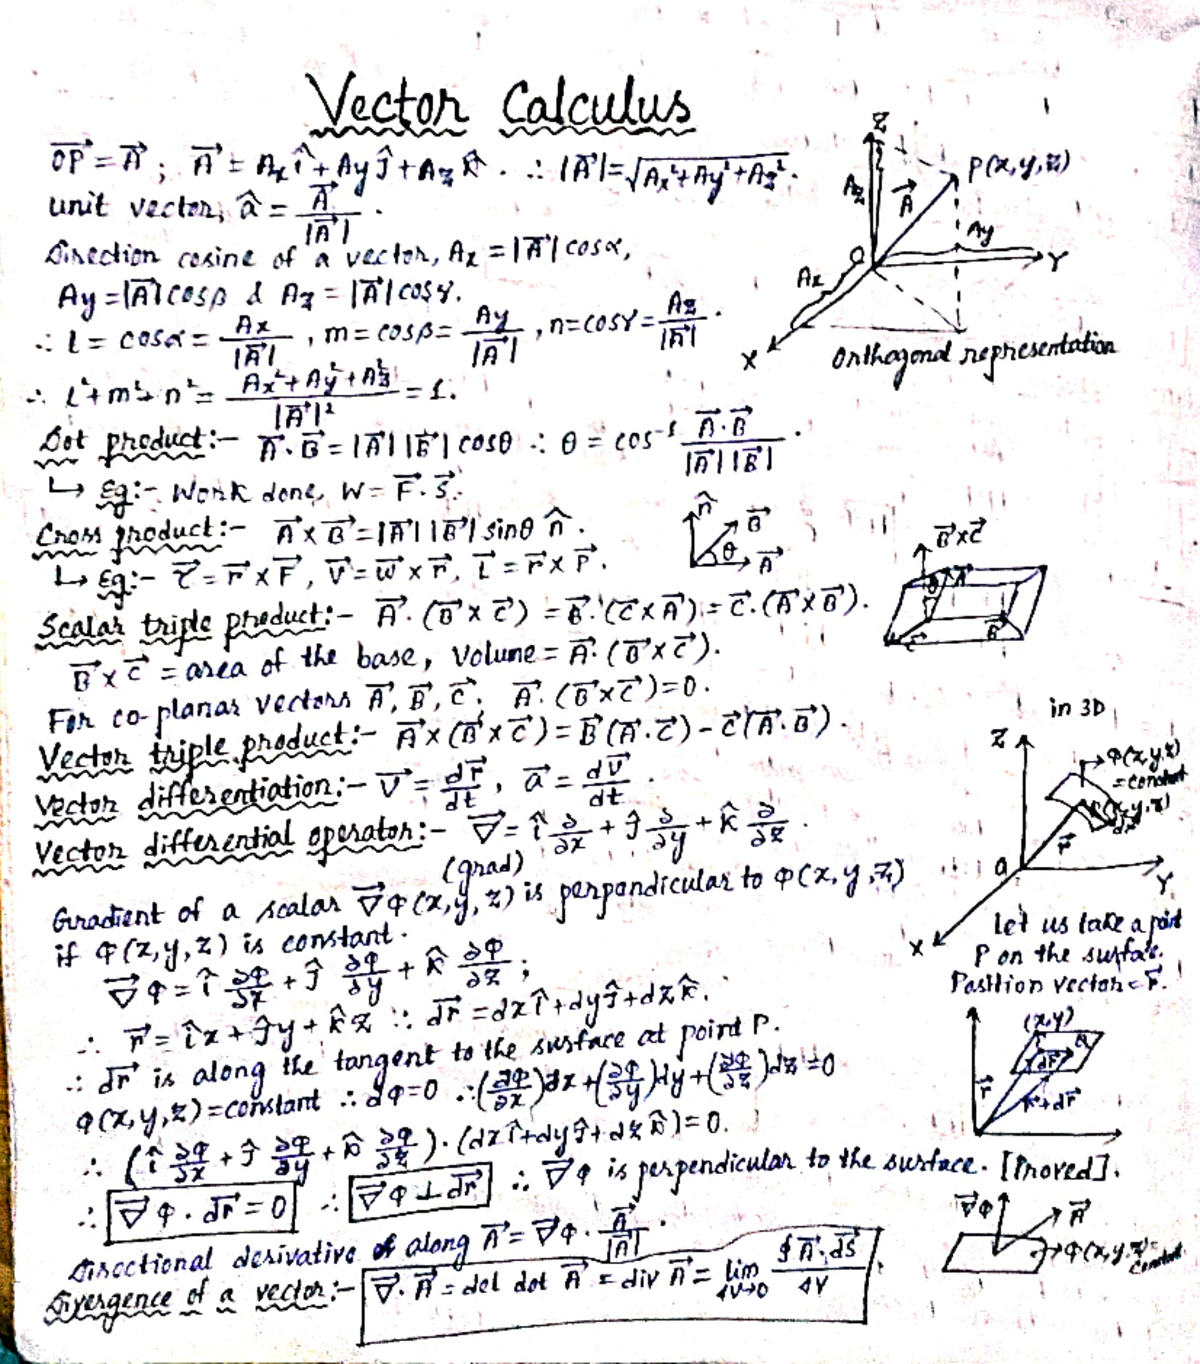 Vector Calculus
OP⃗ = A⃗ ; A⃗ = Aₓî + Ayĵ + A_z k̂ . ∴ |A⃗| = √(Aₓ² + Ay² + A_z²).
unit vector, â = A⃗/|A⃗| .
Direction cosine of a vector, Aₓ = |A⃗| cosα,
Ay = |A⃗| cosβ & A_z = |A⃗| cosγ.
∴ l = cosα = Ax/|A⃗| , m = cosβ = Ay/|A⃗| , n = cosγ = Az/|A⃗| .
∴ l² + m² + n² = (Ax² + Ay² + Az²)/|A⃗|² = 1.
Z
P(x,y,z)
A_z
A⃗
Ay
O
Y
Ax
X
Orthogonal representation
Dot product:- A⃗·B⃗ = |A⃗| |B⃗| cosθ ∴ θ = cos⁻¹ A⃗·B⃗/|A⃗| |B⃗| .
↳ Eg:- Work done, W = F⃗·S⃗.
Cross product:- A⃗ × B⃗ = |A⃗| |B⃗| sinθ n̂ .
↳ Eg:- τ⃗ = r⃗ × F⃗ , V⃗ = w⃗ × r⃗ , L⃗ = r⃗ × P⃗ .
n̂
B⃗
θ
A⃗
B⃗×C⃗
A⃗
θ
B⃗
C⃗
Scalar triple product:- A⃗·(B⃗ × C⃗) = B⃗·(C⃗ × A⃗) = C⃗·(A⃗ × B⃗).
B⃗ × C⃗ = area of the base, Volume = A⃗·(B⃗ × C⃗).
For co-planar vectors A⃗, B⃗, C⃗, A⃗·(B⃗ × C⃗) = 0.
Vector triple product:- A⃗ × (B⃗ × C⃗) = B⃗(A⃗·C⃗) - C⃗(A⃗·B⃗) .
Vector differentiation:- V⃗ = dr⃗/dt , a⃗ = dv⃗/dt .
Vector differential operator:- ∇⃗ = î ∂/∂x + ĵ ∂/∂y + k̂ ∂/∂z .
(grad)
Gradient of a scalar ∇⃗φ(x,y,z) is perpendicular to φ(x,y,z)
if φ(x,y,z) is constant.
∇⃗φ = î ∂φ/∂x + ĵ ∂φ/∂y + k̂ ∂φ/∂z ;
∴ r⃗ = îx + ĵy + k̂z ∴ dr⃗ = dxî + dyĵ + dzk̂.
∴ dr⃗ is along the tangent to the surface at point P.
φ(x,y,z) = constant ∴ dφ = 0 ∴ (∂φ/∂x)dx + (∂φ/∂y)dy + (∂φ/∂z)dz = 0
∴ (î ∂φ/∂x + ĵ ∂φ/∂y + k̂ ∂φ/∂z)·(dxî + dyĵ + dzk̂) = 0.
∴ ∇⃗φ·dr⃗ = 0 ∴ ∇⃗φ ⊥ dr⃗ ∴ ∇⃗φ is perpendicular to the surface. [Proved].
in 3D
Z
φ(x,y,z)
= constant
(x,y,z)
dr⃗
r⃗
O
Y
X
Let us take a point
P on the surface.
Position vector = r⃗.
(x,y)
P
Q
dr⃗
r⃗
r⃗+dr⃗
Directional derivative of along A⃗ = ∇⃗φ · A⃗/|A⃗| .
∇⃗φ
A⃗
φ(x,y,z) =
constant
Divergence of a vector:- ∇⃗·A⃗ = del dot A⃗ = div A⃗ = lim ΔV→0 ∮A⃗·dS⃗/ΔV .